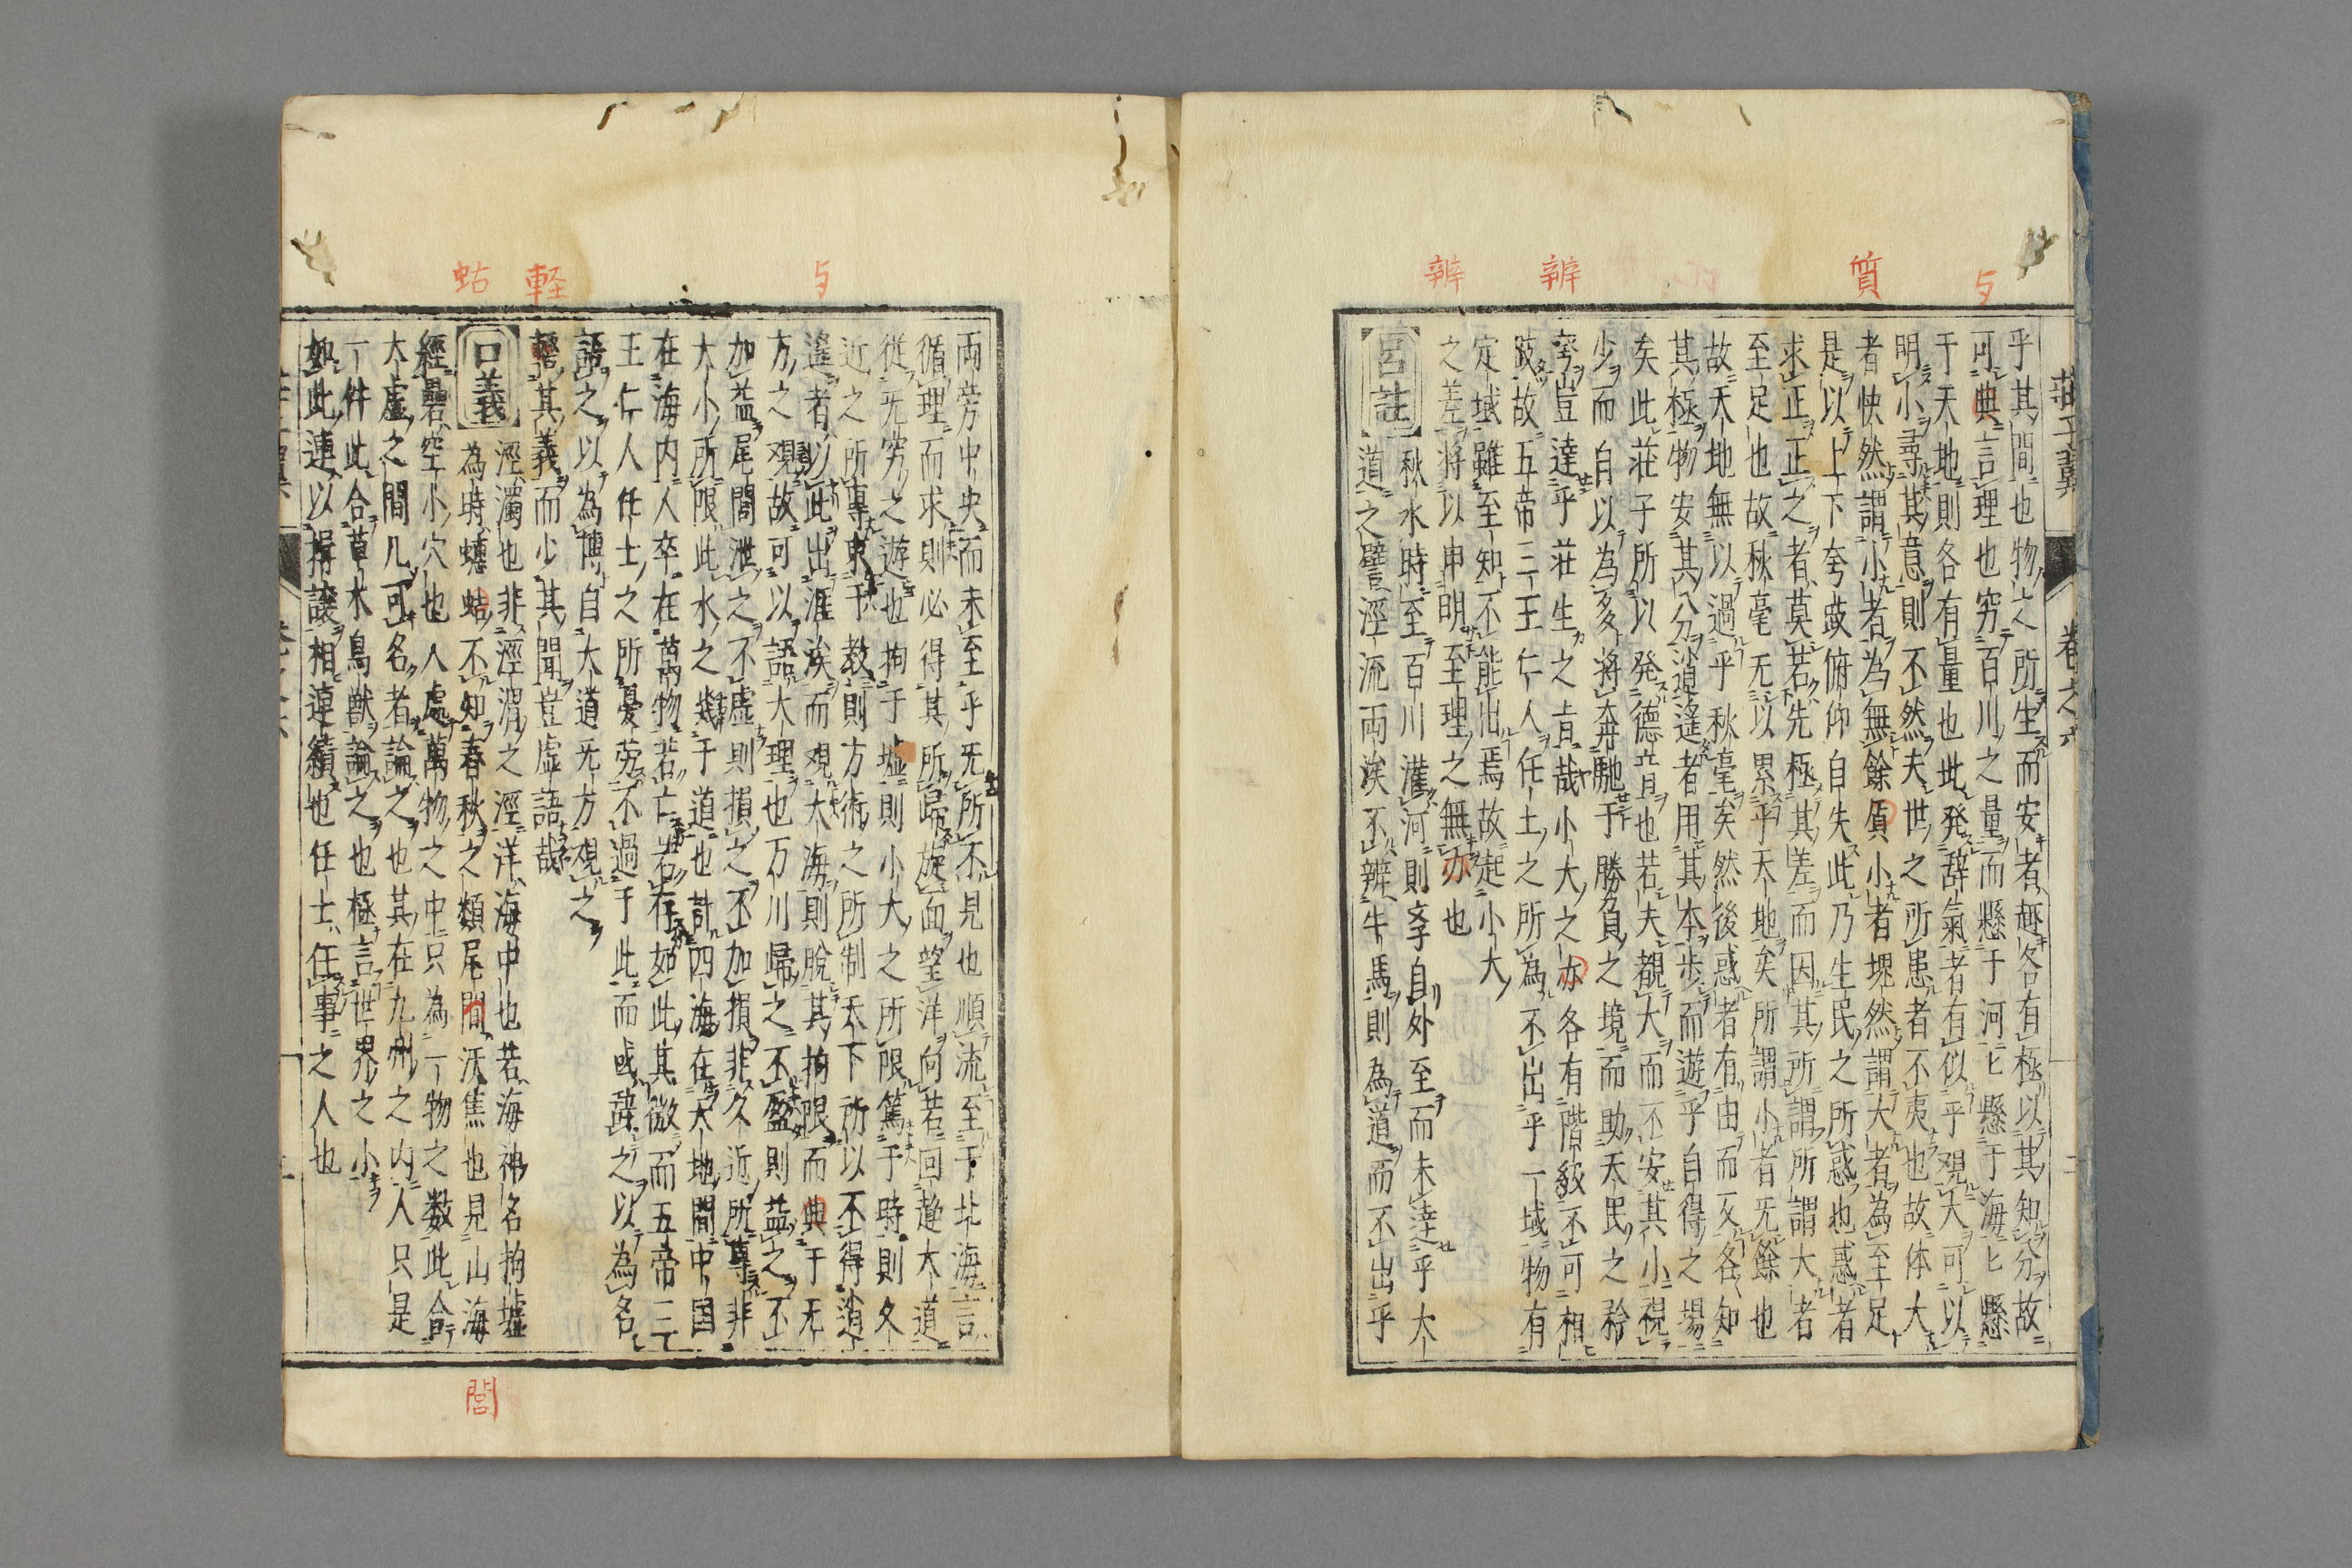 与
質
辨
辨
莊子翼 卷之六
乎其間也物之所生而安者趣各有極以其知分故
可典言理也穷百川之量而懸于河匕懸于海匕懸
于天地則各有量也此発辞氣者有似乎覌大可以
明小尋其意則不然夫世之所患者不夷也故体大
者快然謂小者為無餘貭小者塊然謂大者為至足
是以上下夸跂俯仰自失此乃生民之所惑也惑者
求正正之者莫若先極其差而因其所謂所謂大者
至足也故秋毫无以累乎天地矣所謂小者无餘也
故天地無以過乎秋毫矣然後惑者有由而反各知
其極物安其分逍遥者用其本歩而遊乎自得之場
矣此荘子所以発德音也若夫覩大而不安其小視
少而自以為多将奔馳于勝負之境而助天民之矜
夸豈達乎荘生之㫖哉小大之亦各有階級不可相
跂故五帝三王仁人任士之所為不出乎一域物有
定域雖至知不能出焉故起小大
之差将以申明至理之無亦也
呂註 秋水時至百川灌河則孛自外至而未達乎大
道之譬涇流両涘不辨牛馬則為道而不出乎
与
軽
蛄
両旁中央而未至乎无所不見也順流至于北海言
循理而求則必得其所歸旋面望洋向若回趍大道
従无穷之遊也拘于墟則小大之所限篤于時則久
近之所專束于教則方術之所制天下所以不得逍
遥者以此出涯涘而覌大海則脫其拘限而典于无
方之覌故可以語大理也万川歸之不盈則益之不
加益尾閭泄之不虚則損之不加損非久近所專非
大小所限此水之幾于道也計四海在天地間中国
在海内人卒在萬物若亡若存如此其微而五帝三
王仁人任士之所憂劳不過于此而或辞之以為名
語之以為博自大道无方視之
輕其義而少其聞豈虚語哉
口義 涇濁也非涇渭之涇洋海中也若海神名拘墟
為時蟪蛄不知春秋之類尾閭沃焦也見山海
經礨空小穴也人處萬物之中只為一物之数此合
大虚之間几可名者論之也其在九州之内人只是
一件此合草木鳥獣論之也極言世界之小
如此連以揖譲相連續也任士任事之人也
閭